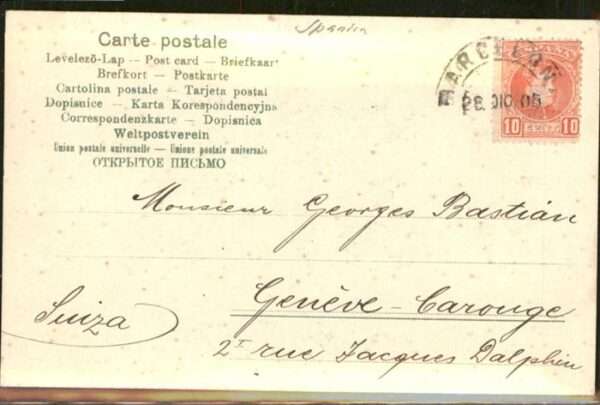 Spanien
Carte postale
Levelező-Lap — Post card — Briefkaart
Brefkort - Postkarte
Cartolina postale - Tarjeta postal
Dopisnice - Karta Korespondencyjna
Correspondenzkarte - Dopisnica
Weltpostverein
Union postale universelle — Unione postale universale
ОТКРЫТОЕ ПИСЬМО
BARCELONA
28 DIC 05
10 10
Monsieur Georges Bastián
Genève-Carouge
Suiza
2T rue Jacques Dalphin